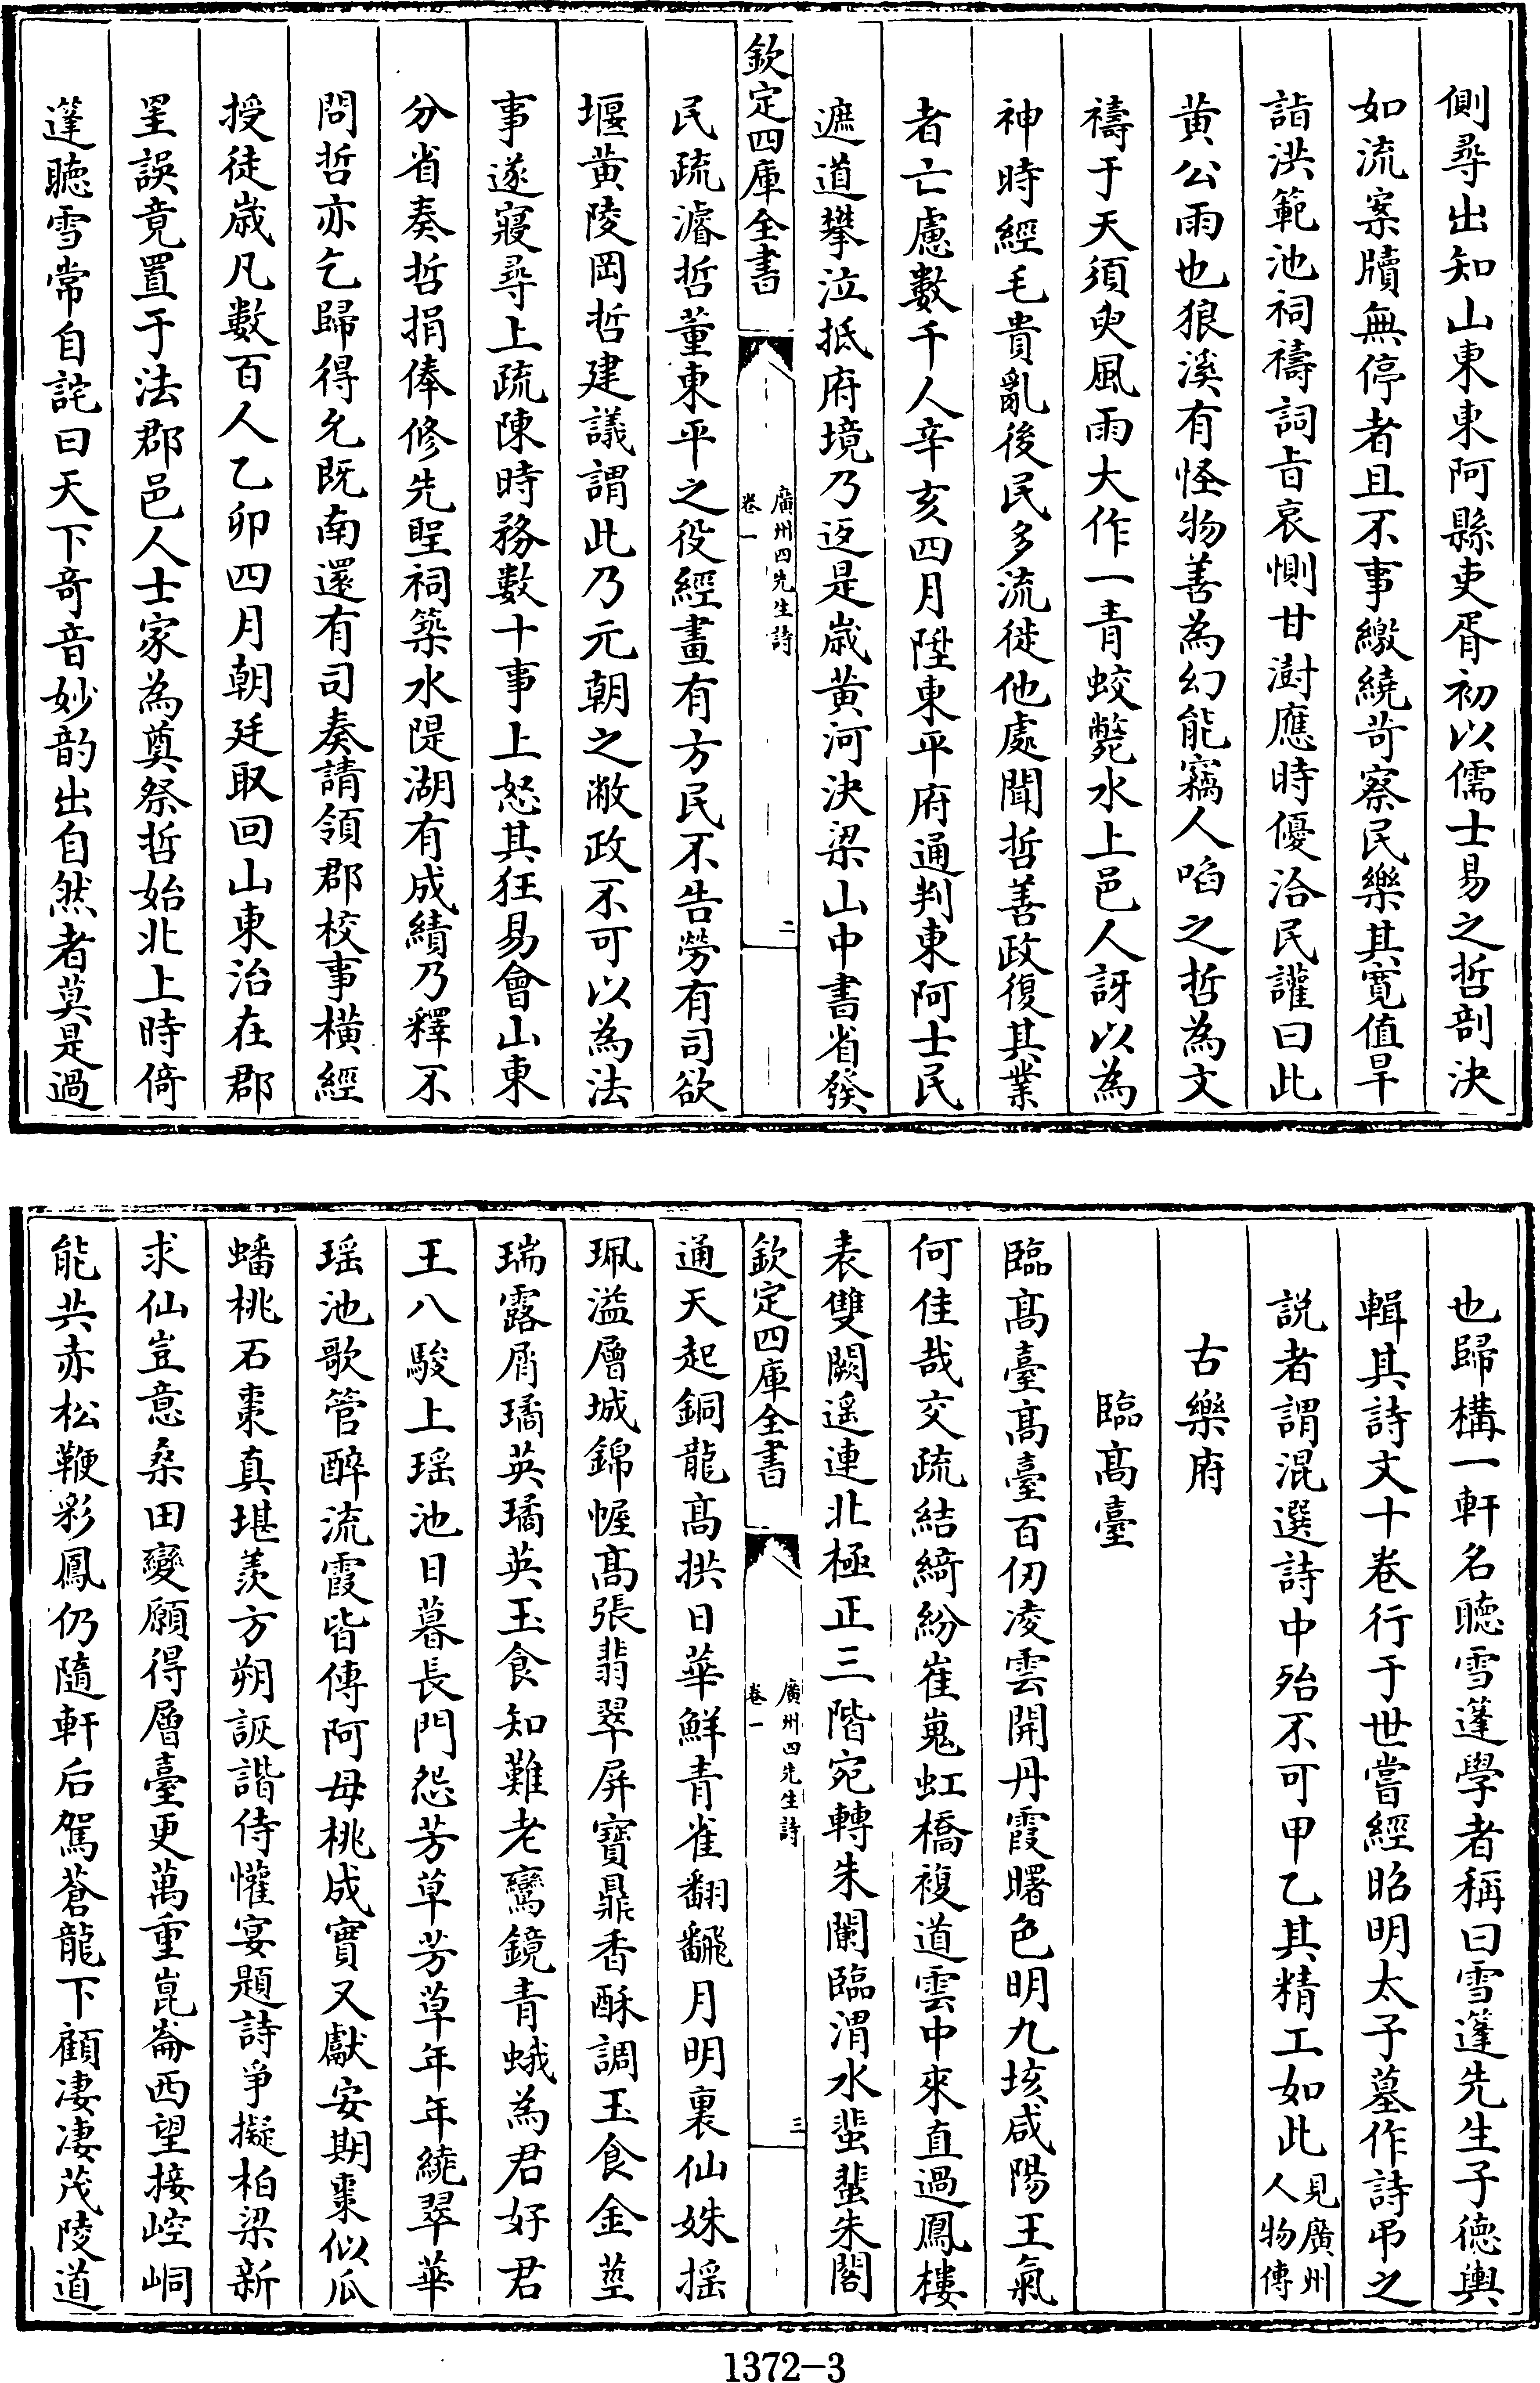 側尋出知山東東阿縣吏胥初以儒士易之哲剖決
如流案牘無停者且不事繳繞苛察民樂其寛值旱
詣洪範池祠禱詞㫖哀惻甘澍應時優洽民讙曰此
黄公雨也狼溪有怪物善為幻能竊人啗之哲為文
禱于天須臾風雨大作一青蛟斃水上邑人訝以為
神時經毛貴亂後民多流徙他處聞哲善政復其業
者亡慮數千人辛亥四月陞東平府通判東阿士民
遮道攀泣抵府境乃返是嵗黄河決梁山中書省發
欽定四庫全書
廣州四先生詩
卷一
二
民疏濬哲董東平之役經畫有方民不告勞有司欲
堰黄陵岡哲建議謂此乃元朝之敝政不可以為法
事遂寢尋上疏陳時務數十事上怒其狂易會山東
分省奏哲捐俸修先聖祠築水隄湖有成績乃釋不
問哲亦乞歸得允既南還有司奏請領郡校事橫經
授徒嵗凡數百人乙卯四月朝廷取回山東治在郡
罣誤竟置于法郡邑人士家為奠祭哲始北上時倚
篷聴雪常自詫曰天下竒音妙韵出自然者莫是過
也歸構一軒名聴雪篷學者稱曰雪篷先生子徳輿
輯其詩文十卷行于世嘗經昭明太子墓作詩弔之
説者謂混選詩中殆不可甲乙其精工如此見廣州
人物傳
古樂府
臨髙臺
臨髙臺髙臺百仞凌雲開丹霞曙色明九垓咸陽王氣
何佳哉交疏結綺紛崔嵬虹橋複道雲中來直過鳳樓
表雙闕遥連北極正三階宛轉朱闌臨渭水蜚蜚朱閣
欽定四庫全書
廣州四先生詩
卷一
三
通天起銅龍髙拱日華鮮青雀翻飜月明裏仙姝揺
珮溢層城錦幄髙張翡翠屏寳鼎香酥調玉食金莖
瑞露屑璚英璚英玉食知難老鸞鏡青蛾為君好君
王八駿上瑶池日暮長門怨芳草芳草年年繞翠華
瑶池歌管醉流霞皆傳阿母桃成實又獻安期棗似瓜
蟠桃石棗真堪羨方朔詼諧侍懽宴題詩爭擬柏梁新
求仙豈意桑田變願得層臺更萬重崑崙西望接崆峒
能共赤松鞭彩鳳仍隨軒后駕蒼龍下顧凄凄茂陵道
1372-3